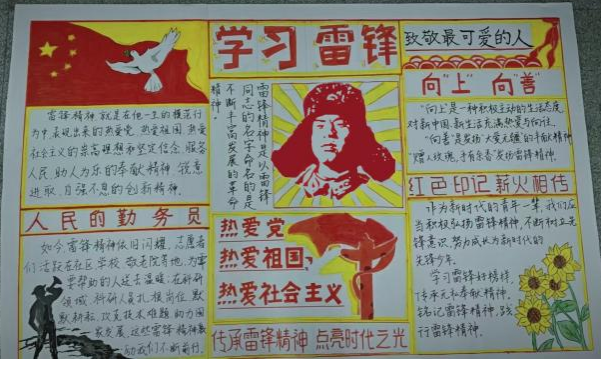 学习雷锋
雷锋精神就是在他一生的模范行
为中表现出来的热爱党、热爱祖国、热爱
社会主义的崇高理想和坚定信念,服务
人民、助人为乐的奉献精神,锐意
进取、自强不息的创新精神。
人民的勤务员
如今雷锋精神依旧闪耀,志愿者
们活跃在社区学校、敬老院等地,为需
要帮助的人送去温暖;在科研
领域,科研人员扎根岗位,默
默耕耘,攻克技术难题,助力国
家发展,这些雷锋精神激
励我们不断前行。
雷锋精神是以雷锋
同志的名字命名的是
不断丰富发展的革命
精神。
热爱党
热爱祖国、
热爱社会主义
传承雷锋精神 点亮时代之光
致敬最可爱的人
向"上" 向"善"
"向上"是一种积极主动的生活态度
对新中国、新生活充满热爱与向往。
"向善"是发扬"大爱无疆"的奉献精神
"赠人玫瑰,手有余香"发扬雷锋精神。
红色印记 薪火相传
作为新时代的青年一辈,我们应
当积极弘扬雷锋精神,不断树立先
锋意识,努力成长为新时代的
先锋少年。
学习雷锋好榜样,
传承无私奉献精神。
铭记雷锋精神,践
行雷锋精神。